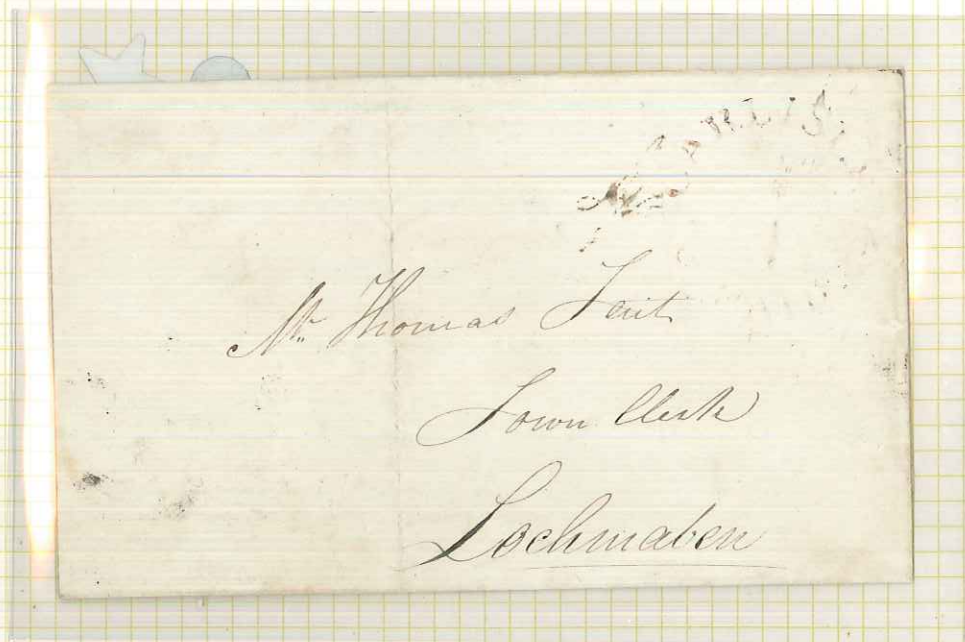 Mr. Thomas Tait
Town Clerk
Lochmaben